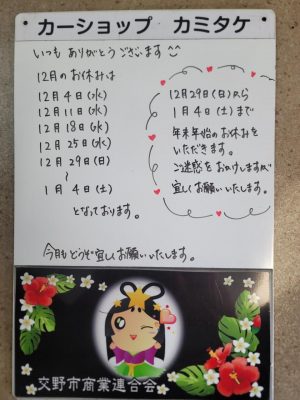 カーショップ カミタケ
いつも ありがとうございます ^^
12月のお休みは
12月 4日(水)
12月 11日(水)
12月 18日(水)
12月 25日(水)
12月 29日(日)
〜
1月 4日(土)
となっております。
12月29日(日)から
1月4日(土)まで
年末年始のお休みを
いただきます。
ご迷惑をおかけしますが
宜しくお願いいたします。
今月もどうぞ宜しくお願いいたします。
交野市商業連合会